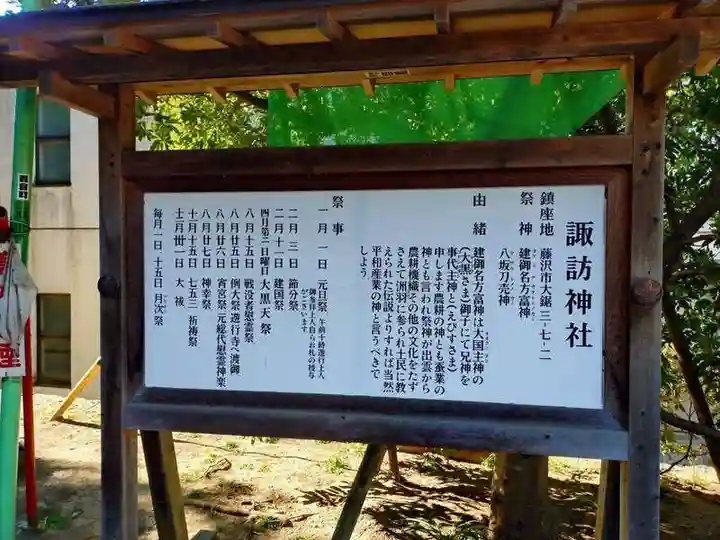 諏訪神社
鎮座地 藤沢市大鋸三-七-二
祭神 建御名方富神
八坂刀売神
由緒 建御名方富神は大国主神の
(大黒さま)御子にて兄神を
事代主神と(えびすさま)
申します農耕の神とも蚕業の
神とも言われ祭神が出雲から
農耕機織その他の文化をたず
さえて洲羽に参られ土民に教
えられた伝説よりすれば当然
平和産業の神と言うべきで
しょう
祭事
一月一日 元旦祭 午前十時遊行上人
御参拝上人自らお札の授与
がございます
二月三日 節分祭
二月十一日 建国祭
四月第二日曜日 大黒天祭
八月十五日 戦没者慰霊祭
八月廿五日 例大祭遊行寺へ渡御
八月廿六日 宵宮祭元総代慰霊神楽
八月廿七日 神幸祭
十月十五日 七五三祈祷祭
十二月廿一日 大祓
毎月一日 十五日 月次祭